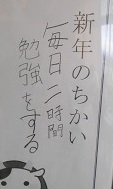 新年のちかい
毎日二時間
勉強をする